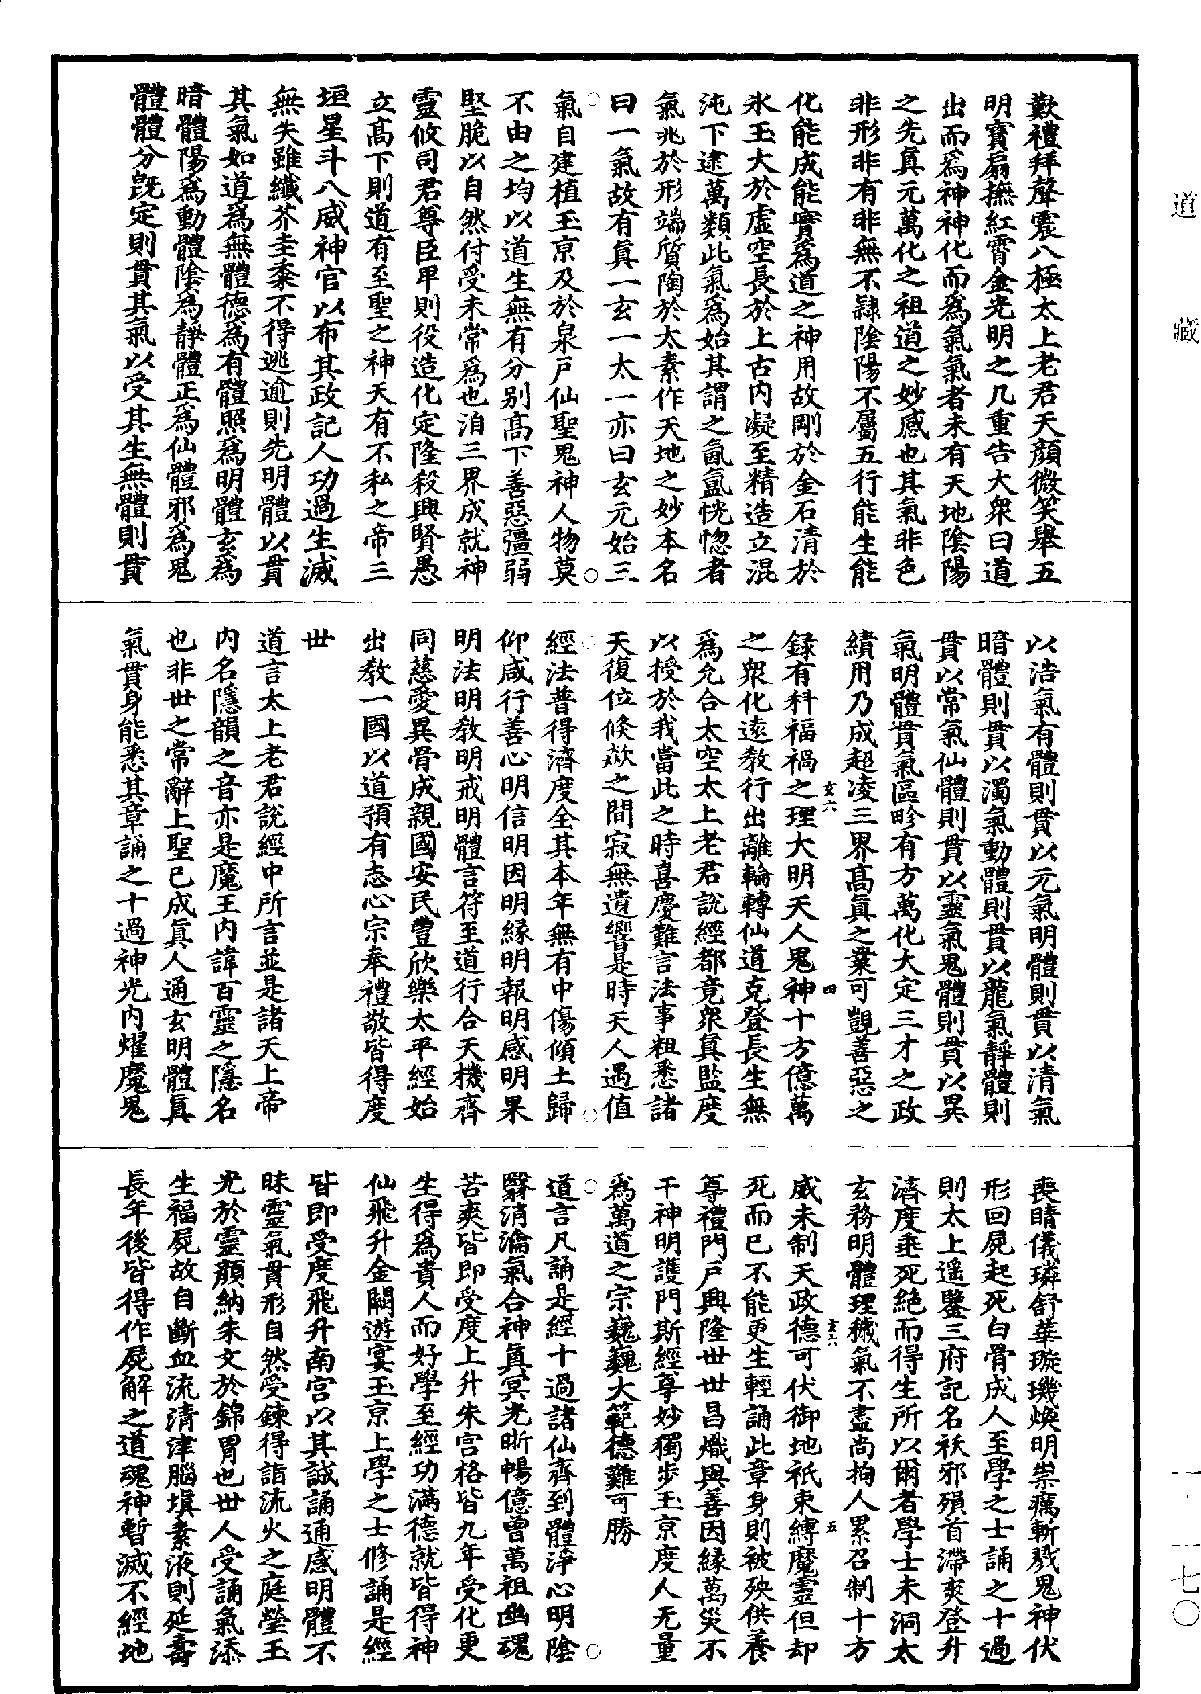 歎禮拜聲震八極太上老君天顏微笑舉五
明寶扇撫紅霄金光明之几重告大衆曰道
出而爲神神化而爲氣氣者未有天地陰陽
之先真元萬化之祖道之妙感也其氣非色
非形非有非無不隸陰陽不屬五行能生能
化能成能實爲道之神用故剛於金石清於
氷玉大於虛空長於上古內凝至精造立混
沌下逮萬類此氣爲始其謂之氤氳恍惚者
氣兆於形端質陶於太素作天地之妙本名
曰一氣故有真一玄一太一亦曰玄元始三
氣自建植玉京及於泉戸仙聖鬼神人物莫
不由之均以道生無有分别髙下善惡彊弱
堅脆以自然付受未常爲也洎三界成就神
靈攸司君尊臣卑則役造化定隆殺興賢愚
立髙下則道有至聖之神天有不私之帝三
垣星斗八威神官以布其政記人功過生滅
無失雖纖芥圭黍不得逃逾則先明體以貫
其氣如道爲無體德爲有體照爲明體玄爲
暗體陽爲動體陰爲靜體正爲仙體邪爲鬼
體體分旣定則貫其氣以受其生無體則貫
以浩氣有體則貫以元氣明體則貫以清氣
暗體則貫以濁氣動體則貫以龍氣靜體則
貫以常氣仙體則貫以靈氣鬼體則貫以異
氣明體貫氣區畛有方萬化大定三才之政
績用乃成超凌三界髙真之業可觀善惡之
録有科福禍之理大明天人鬼神十方億萬
之衆化逺敎行出離輪轉仙道克登長生無
爲允合太空太上老君說經都竟衆真監度
以授於我當此之時喜慶難言法事粗悉諸
天復位倏欻之間寂無遺響是時天人遇值
經法普得濟度全其本年無有中傷傾土歸
仰咸行善心明信明因明緣明報明感明果
明法明敎明戒明體言符至道行合天機齊
同慈愛異骨成親國安民豐欣樂太平經始
出敎一國以道預有志心宗奉禮敬皆得度
世
道言太上老君說經中所言並是諸天上帝
內名隱韻之音亦是魔王內諱百靈之隱名
也非世之常辭上聖已成真人通玄明體真
氣貫身能悉其章誦之十過神光內燿魔鬼
喪睛儀璘舒華璇璣煥明祟癘斬戮鬼神伏
形回屍起死白骨成人至學之士誦之十過
則太上遥鑒三府記名袄邪殞首滯爽登升
濟度垂死絶而得生所以爾者學士未洞太
玄務明體理穢氣不盡尚拘人累召制十方
威未制天政德可伏御地祇束縛魔靈但却
死而已不能更生輕誦此章身則被殃供養
尊禮門戸興隆世世昌熾與善因緣萬災不
干神明護門斯經尊妙獨步玉京度人无量
爲萬道之宗巍巍大範德難可勝
道言凡誦是經十過諸仙齊到體淨心明陰
翳消瀹氣合神真冥光昕暢億曾萬祖幽魂
苦爽皆即受度上升朱宫格皆九年受化更
生得爲貴人而好學至經功滿德就皆得神
仙飛升金闕遊宴玉京上學之士修誦是經
皆即受度飛升南宫以其誠誦通感明體不
昧靈氣貫形自然受鍊得詣流火之庭瑩玉
光於靈顔納朱文於錦胃也世人受誦氣添
生福屍故自斷血流清津腦塡素液則延壽
長年後皆得作屍解之道魂神暫滅不經地
玄六
四
玄六
五
道
藏
一·一七〇